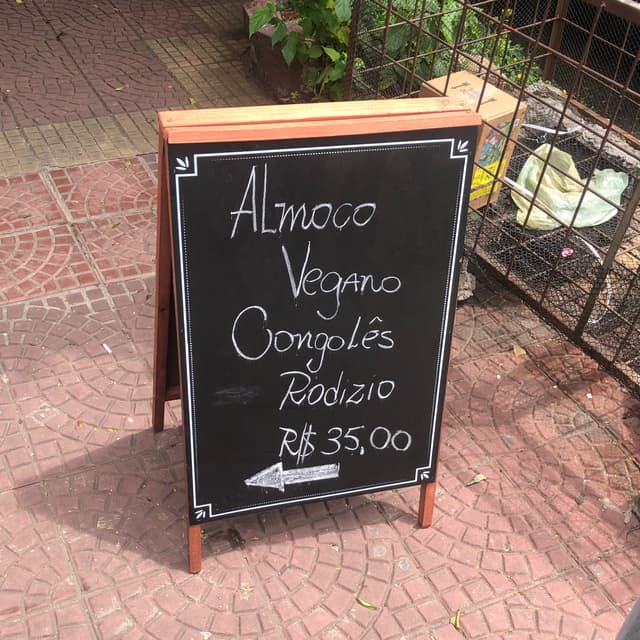 ALmoço
Vegano
CongoLês
Rodizio
R$ 35,00